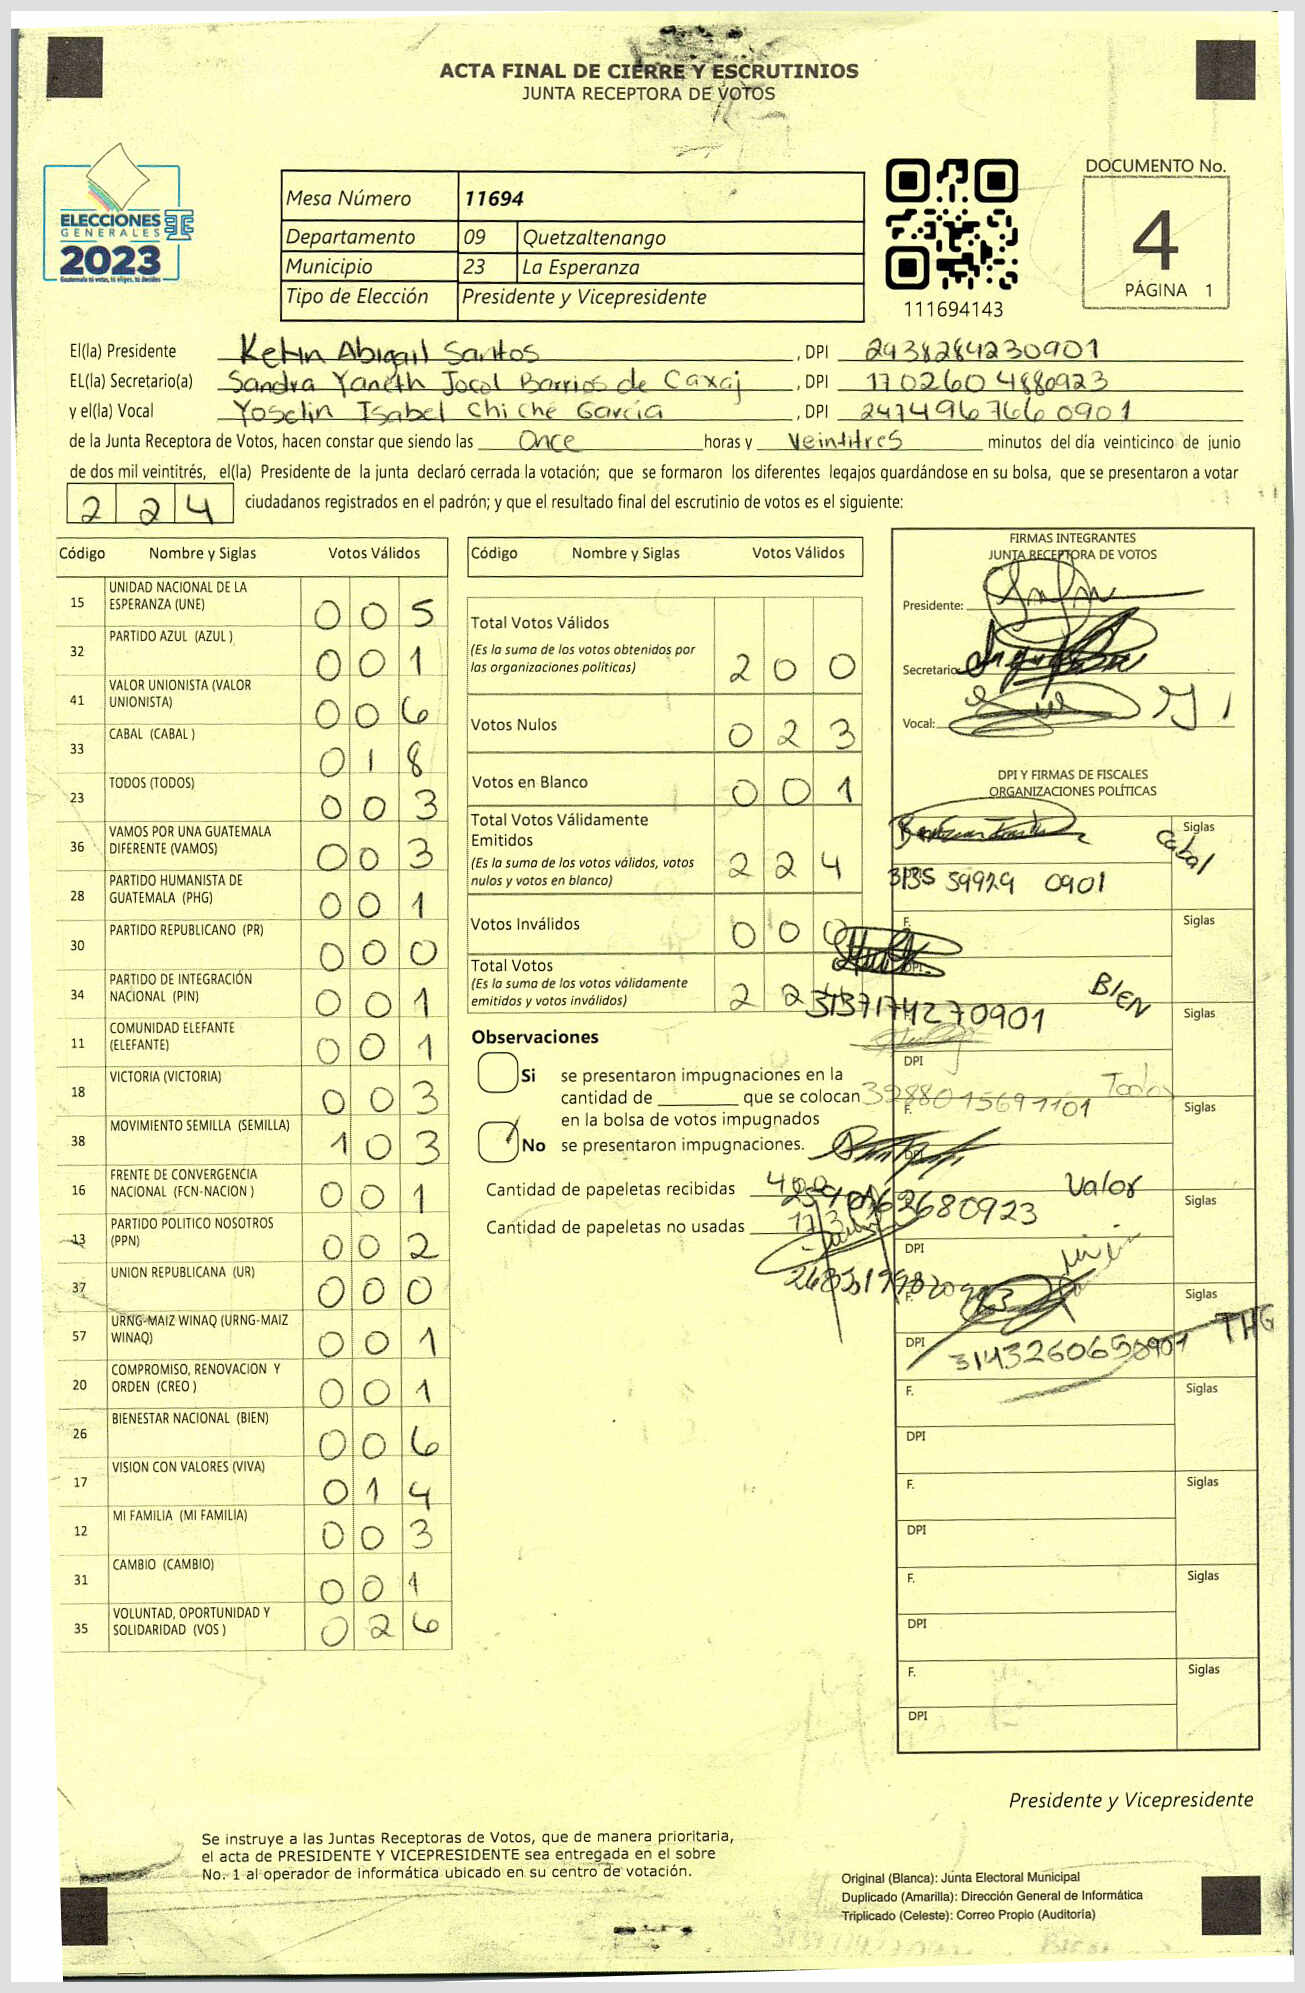 ACTA FINAL DE CIERRE Y ESCRUTINIOS
JUNTA RECEPTORA DE VOTOS
ELECCIONES
GENERALES
2023
Guatemala tú votas, tú eliges, tú decides
Mesa Número 11694
Departamento 09 Quetzaltenango
Municipio 23 La Esperanza
Tipo de Elección Presidente y Vicepresidente
111694143
DOCUMENTO No.
4
PÁGINA 1
El(la) Presidente Ketin Abigail Santos , DPI 2438284230901
EL(la) Secretario(a) Sandra Yaneth Jocol Barrios de Caxaj , DPI 1702604880923
y el(la) Vocal Yoselin Isabel Chiché García , DPI 2474967660901
de la Junta Receptora de Votos, hacen constar que siendo las Once horas y Veintitres minutos del día veinticinco de junio
de dos mil veintitrés, el(la) Presidente de la junta declaró cerrada la votación; que se formaron los diferentes legajos guardándose en su bolsa, que se presentaron a votar
2 2 4 ciudadanos registrados en el padrón; y que el resultado final del escrutinio de votos es el siguiente:
Código Nombre y Siglas Votos Válidos
15 UNIDAD NACIONAL DE LA ESPERANZA (UNE) 0 0 5
32 PARTIDO AZUL (AZUL ) 0 0 1
41 VALOR UNIONISTA (VALOR UNIONISTA) 0 0 6
33 CABAL (CABAL ) 0 1 8
23 TODOS (TODOS) 0 0 3
36 VAMOS POR UNA GUATEMALA DIFERENTE (VAMOS) 0 0 3
28 PARTIDO HUMANISTA DE GUATEMALA (PHG) 0 0 1
30 PARTIDO REPUBLICANO (PR) 0 0 0
34 PARTIDO DE INTEGRACIÓN NACIONAL (PIN) 0 0 1
11 COMUNIDAD ELEFANTE (ELEFANTE) 0 0 1
18 VICTORIA (VICTORIA) 0 0 3
38 MOVIMIENTO SEMILLA (SEMILLA) 1 0 3
16 FRENTE DE CONVERGENCIA NACIONAL (FCN-NACION ) 0 0 1
13 PARTIDO POLITICO NOSOTROS (PPN) 0 0 2
37 UNION REPUBLICANA (UR) 0 0 0
57 URNG-MAIZ WINAQ (URNG-MAIZ WINAQ) 0 0 1
20 COMPROMISO, RENOVACION Y ORDEN (CREO ) 0 0 1
26 BIENESTAR NACIONAL (BIEN) 0 0 6
17 VISION CON VALORES (VIVA) 0 1 4
12 MI FAMILIA (MI FAMILIA) 0 0 3
31 CAMBIO (CAMBIO) 0 0 1
35 VOLUNTAD, OPORTUNIDAD Y SOLIDARIDAD (VOS ) 0 2 6
Código Nombre y Siglas Votos Válidos
Total Votos Válidos 2 0 0
(Es la suma de los votos obtenidos por
las organizaciones políticas)
Votos Nulos 0 2 3
Votos en Blanco 0 0 1
Total Votos Válidamente
Emitidos 2 2 4
(Es la suma de los votos válidos, votos
nulos y votos en blanco)
Votos Inválidos 0 0 0
Total Votos 2 2
(Es la suma de los votos válidamente
emitidos y votos inválidos)
Observaciones
Si se presentaron impugnaciones en la
cantidad de ________ que se colocan
en la bolsa de votos impugnados
No se presentaron impugnaciones.
Cantidad de papeletas recibidas 400
Cantidad de papeletas no usadas
FIRMAS INTEGRANTES
JUNTA RECEPTORA DE VOTOS
Presidente:
Secretario:
Vocal:
DPI Y FIRMAS DE FISCALES
ORGANIZACIONES POLÍTICAS
Siglas
Cabal
3135 59929 0901
F. Siglas
DPI
BIEN
3137174270901
Siglas
DPI
Todos
3988015691101
F. Siglas
DPI
Valor
Siglas
DPI
F. Siglas
DPI
3143260650901
F. Siglas
DPI
F. Siglas
DPI
F. Siglas
DPI
F. Siglas
DPI
Presidente y Vicepresidente
Se instruye a las Juntas Receptoras de Votos, que de manera prioritaria,
el acta de PRESIDENTE Y VICEPRESIDENTE sea entregada en el sobre
No. 1 al operador de informática ubicado en su centro de votación.
Original (Blanca): Junta Electoral Municipal
Duplicado (Amarilla): Dirección General de Informática
Triplicado (Celeste): Correo Propio (Auditoría)